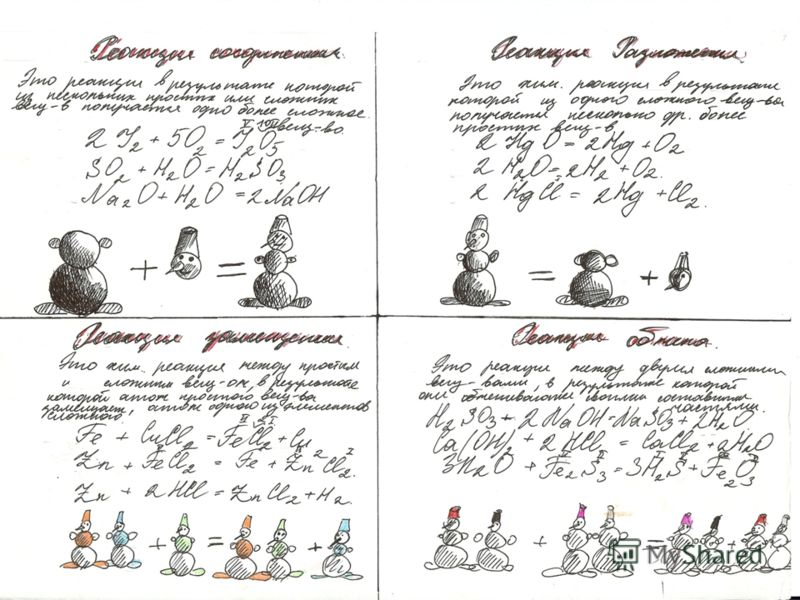 Реакции соединения
Это реакции в результате которой
из нескольких простых или сложных
вещ-в получается одно более сложное
вещ-во
2 I₂ + 5O₂ = I₂O₅
SO₂ + H₂O = H₂SO₃
Na₂O + H₂O = 2NaOH
+ =
Реакция Разложения
Это хим. реакция в результате
которой из одного сложного вещ-ва
получается несколько др. более
простых вещ-в
2 HgO = 2Hg + O₂
2 H₂O = 2H₂ + O₂.
2 HgCl = 2Hg + Cl₂.
= +
Реакция замещения
Это хим. реакция между простым
и сложным вещ-ом, в результате
которой атом простого вещ-ва
замещает, атом одного из элементов
сложного
Fe + CuCl₂ = FeCl₂ + Cu
Zn + FeCl₂ = Fe + ZnCl₂.
Zn + 2HCl = ZnCl₂ + H₂
+ = +
Реакция обмена.
Это реакции между двумя сложными
вещ-вами, в результате которой
они обмениваются своими составными
частями.
H₂SO₃ + 2NaOH = NaSO₃ + 2H₂O
Ca(OH)₂ + 2HCl₂ = CaCl₂ + 2H₂O
3H₂O + Fe₂S₃ = 3H₂S + Fe₂O₃
+ = +
MyShared